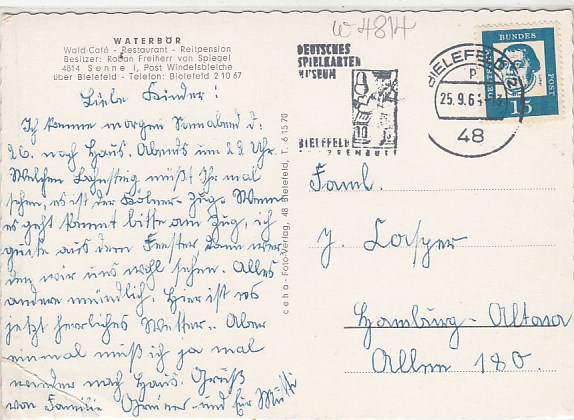 w 4814
WATERBÖR
Wald-Café - Restaurant - Reitpension
Besitzer: Raban Freiherr von Spiegel
4814 Senne I, Post Windelsbleiche
über Bielefeld - Telefon: Bielefeld 2 10 67
Liebe Kinder!
Ich komme morgen Sonnabend d.
26. nach Haus. Abends um 22 Uhr.
Welchen Bahnsteig müßt Ihr mal
sehen, es ist der Kölner-Zug. Wenn
es geht kommt bitte am Zug, ich
gucke aus dem Fenster, dann wer-
den wir uns wohl sehen. Alles
andere mündlich. Hier ist es
jetzt herrliches Wetter. Aber
einmal muß ich ja mal
wieder nach Haus. Gruß
von Familie und Eure Mutti
ceha-Foto-Verlag, 48 Bielefeld, T. 61570
DEUTSCHES
SPIELKARTEN
MUSEUM
10
BIELEFELD
BIELEFELD 2
p
25.9.6
48
DEUTSCHE BUNDESPOST
15
Faml.
J. Casper
Hamburg-Altona
Allee 180.